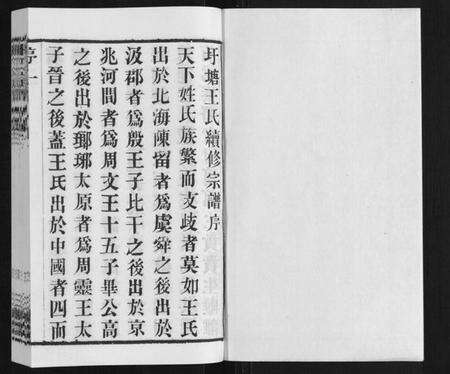 圩塘王氏續修宗譜序
天下姓氏族繁而支歧者莫如王氏
出於北海陳留者爲虞舜之後出於
汲郡者爲殷王子比干之後出於京
兆河間者爲周文王十五子畢公高
之後出於瑯琊太原者爲周靈王太
子晉之後蓋王氏出於中國者四而
序一